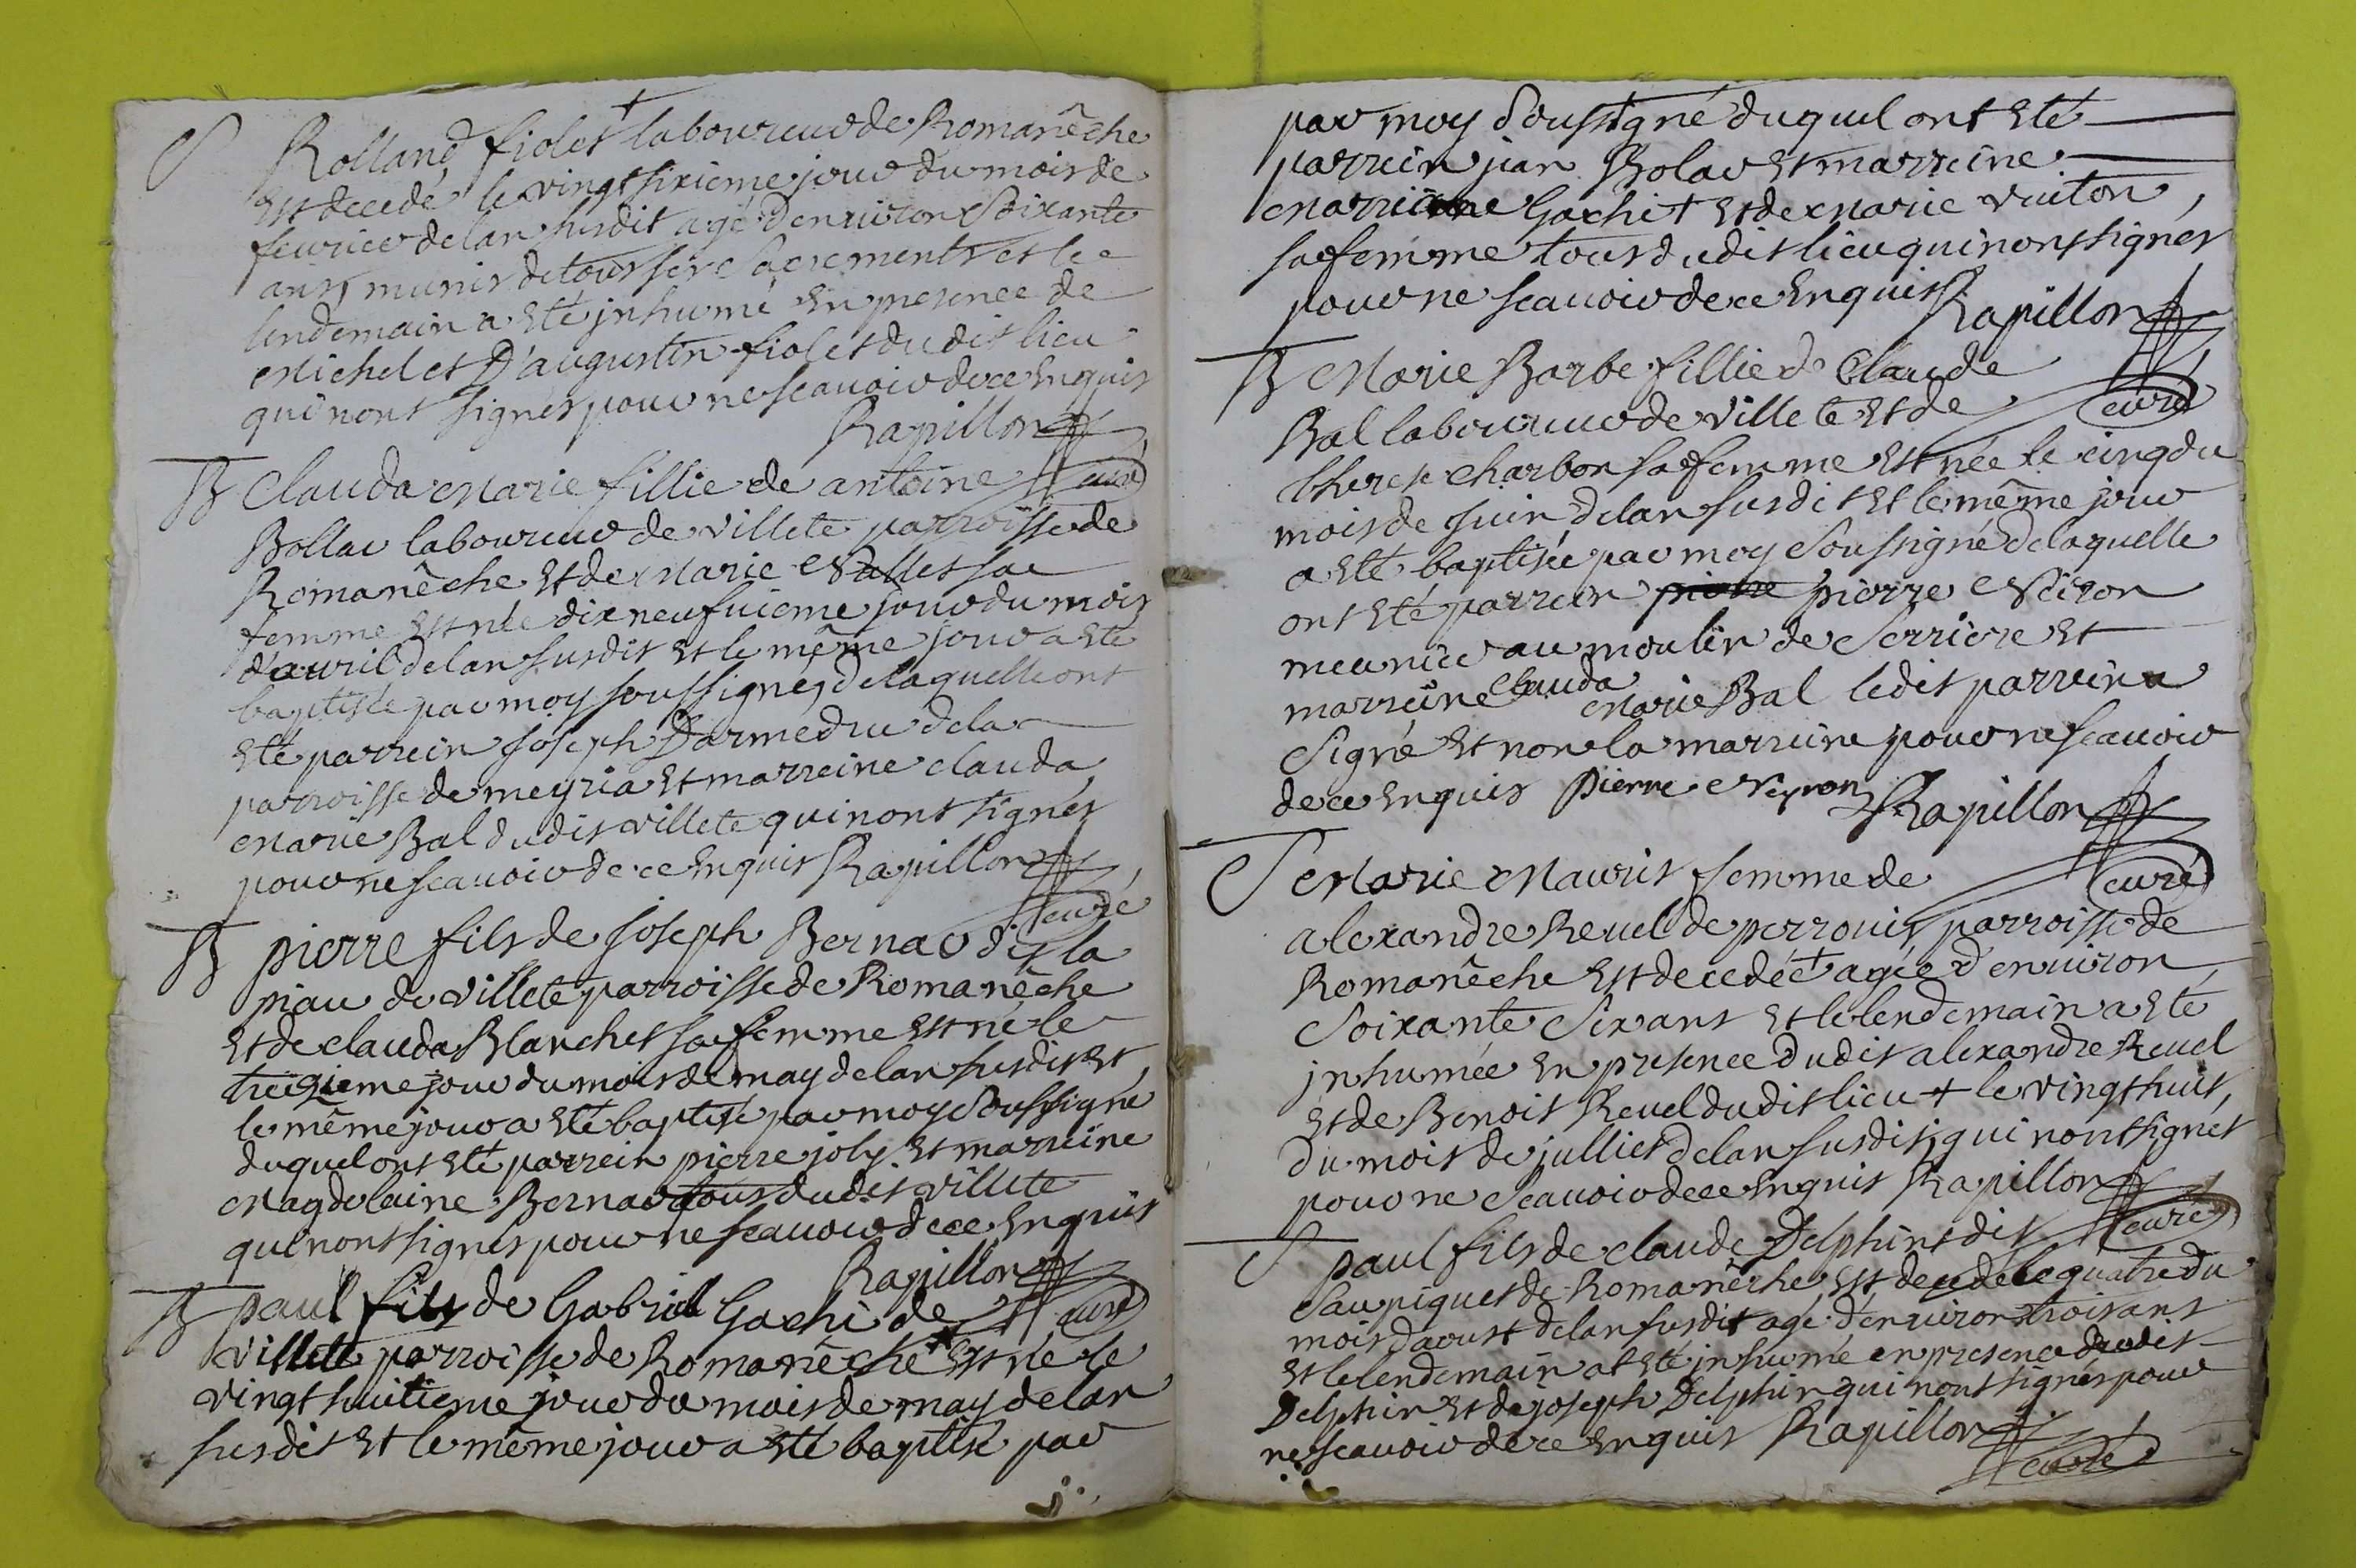 S Rolland fiolet + laboureur de Romanêche
Est decedé le vingt sixieme jour du mois de
feurier de lan susdit agé d'enuiron Soixante
ans, munis de tous ses Sacrements et le
lendemain a Eté jnhumé En presence de
Michel et D'augustin fiolet dudit lieu
qui nont signés pour ne scauoir de ce Enquis
Rapillon
curé
B Clauda Marie fillie de antoine
Bollar laboureur de villete parroisse de
Romanêche Et de Marie Nallet sa
femme Est née dix neufuieme jour du mois
d'auril de lan susdit Et le même jour a Eté
baptisée par moy soussigné, de laquelle ont
Eté parrein joseph Darmedru de la
parroisse de meyria Et marreine clauda
Marie Bal dudit villete qui nont signés
pour ne scauoir de ce Enquis Rapillon
curé
B pierre fils de joseph Bernar dit la
piau de villete parroisse de Romanêche
Et de clauda Blanchet sa femme Est né le
treizieme jour du mois de may de lan susdit Et
le même jour a Eté baptisé par moy Soussigné
duquel ont Eté parrein pierre joly Et marreine
Magdelaine Bernar tous dudit villete
qui nont signés pour ne scauoir de ce Enquis
Rapillon
curé
B paul fils de Gabriel Gachi de
villete parroisse de Romanêche * Est né le
vingt huitieme jour du mois de may de lan
susdit Et le même jour a Eté baptisé par
par moy Soussigné duquel ont Eté
parrein jean Bolar Et marreine
Marriane Gachi + Et de Marie vuiton
sa femme tous dudit lieu qui nont signés
pour ne scauoir de ce Enquis
Rapillon
curé
B Marie Barbe fillie de Claude
Bal laboureur de villete Et de
therese charbon sa femme Est née le cinq du
mois de juin de lan susdit Et le même jour
a Eté baptisée par moy Soussigné de laquelle
ont Eté parrein pierre pierre Neiron
meunier au moulin de Serriere Et
marreine Clauda Marie Bal ledit parrein a
Signé Et non la marreine pour ne scauoir
de ce Enquis pierre Neyron Rapillon
curé
S Marie Mauris femme de
alexandre Reuel de perrouis parroisse de
Romanêche Est decedée + agée d'enuiron
Soixante Six ans Et le lendemain a Eté
jnhumée En presence dudit alexandre Reuel
Et de Benoit Reuel dudit lieu + le vingt huit
du mois de julliet de lan susdit, qui nont signés
pour ne Scauoir de ce Enquis Rapillon
curé
S paul fils de claude Delphin dit
Saupiquet de Romanêche Est decedé le quatre du
mois daoust de lan susdit agé d'enuiron trois ans
Et le lendemain at Eté jnhumé en presence dudit
Delphin Et de joseph Delphin qui nont signés pour
ne scauoir de ce Enquis Rapillon
curé